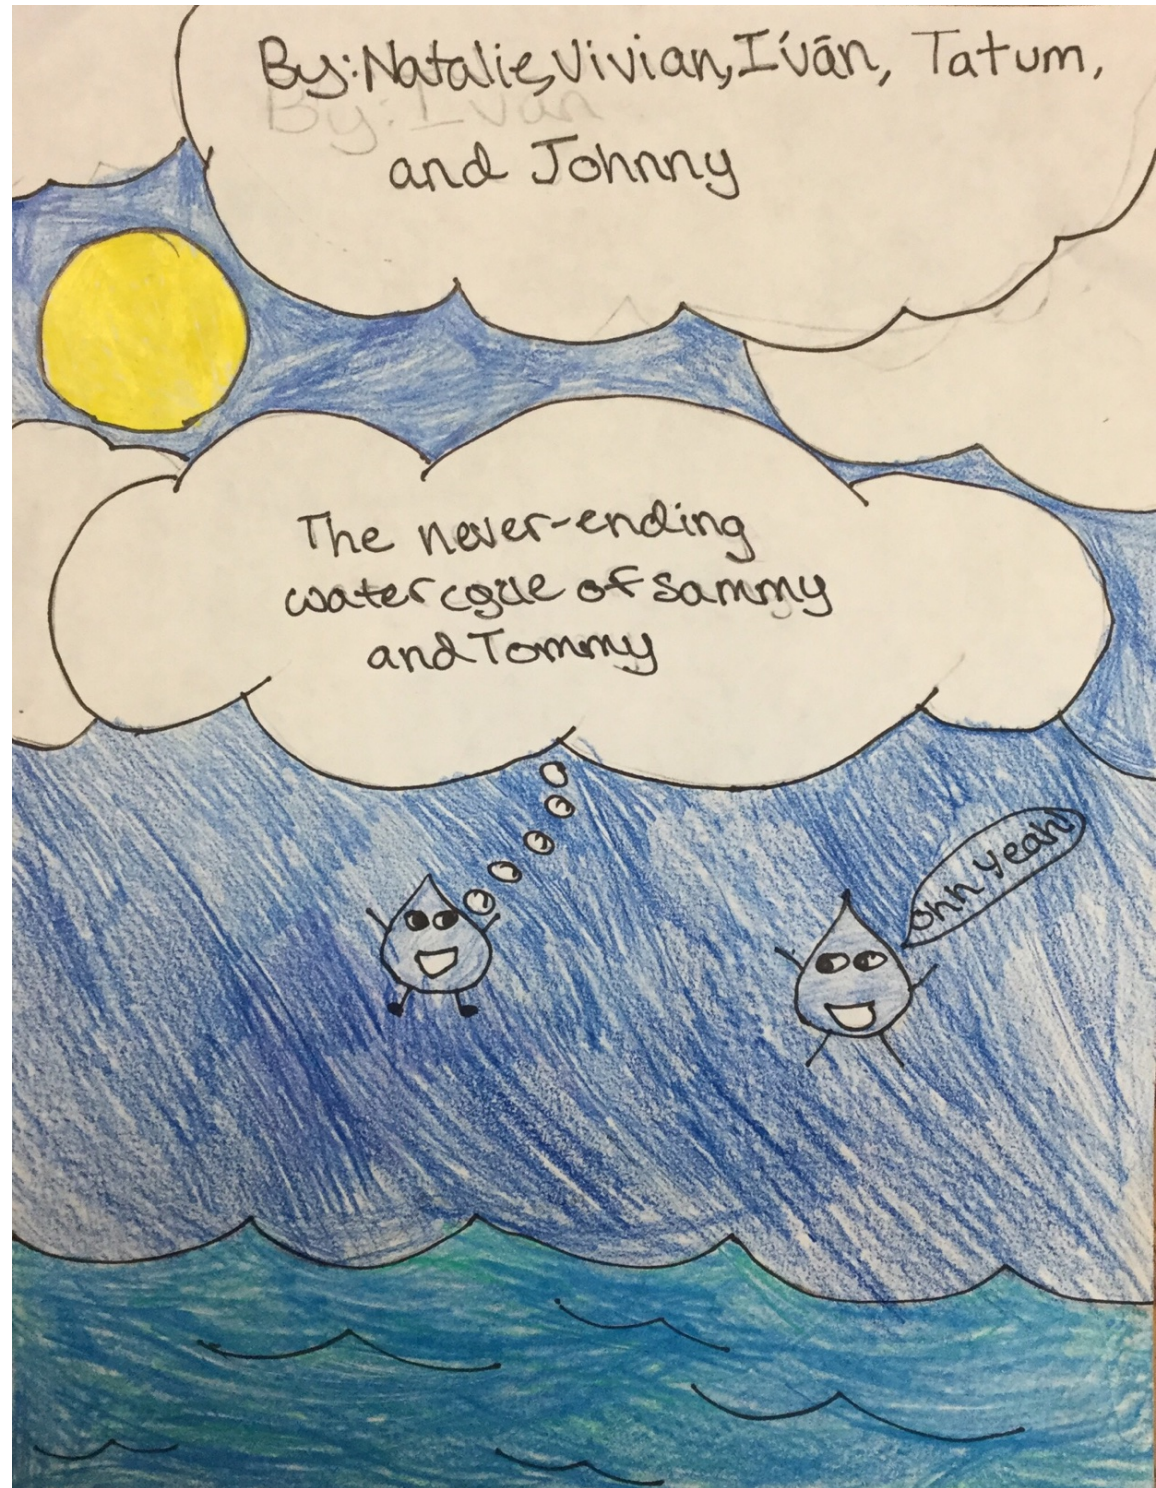 By: Natalie, Vivian, Iván, Tatum,
By: Ivan
and Johnny
The never-ending
water cycle of Sammy
and Tommy
ohh yeah